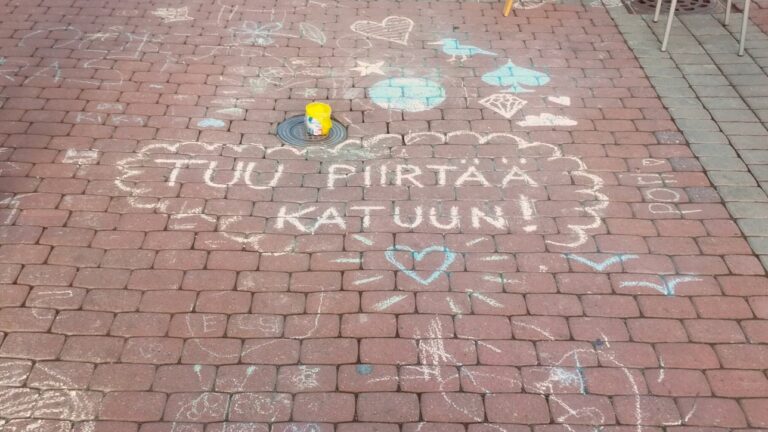 TUU PIIRTÄÄ
KATUUN!